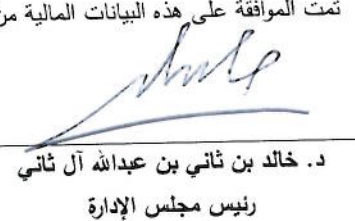 تمت الموافقة على هذه البيانات المالية من
د. خالد بن ثاني بن عبدالله آل ثاني
رئيس مجلس الإدارة